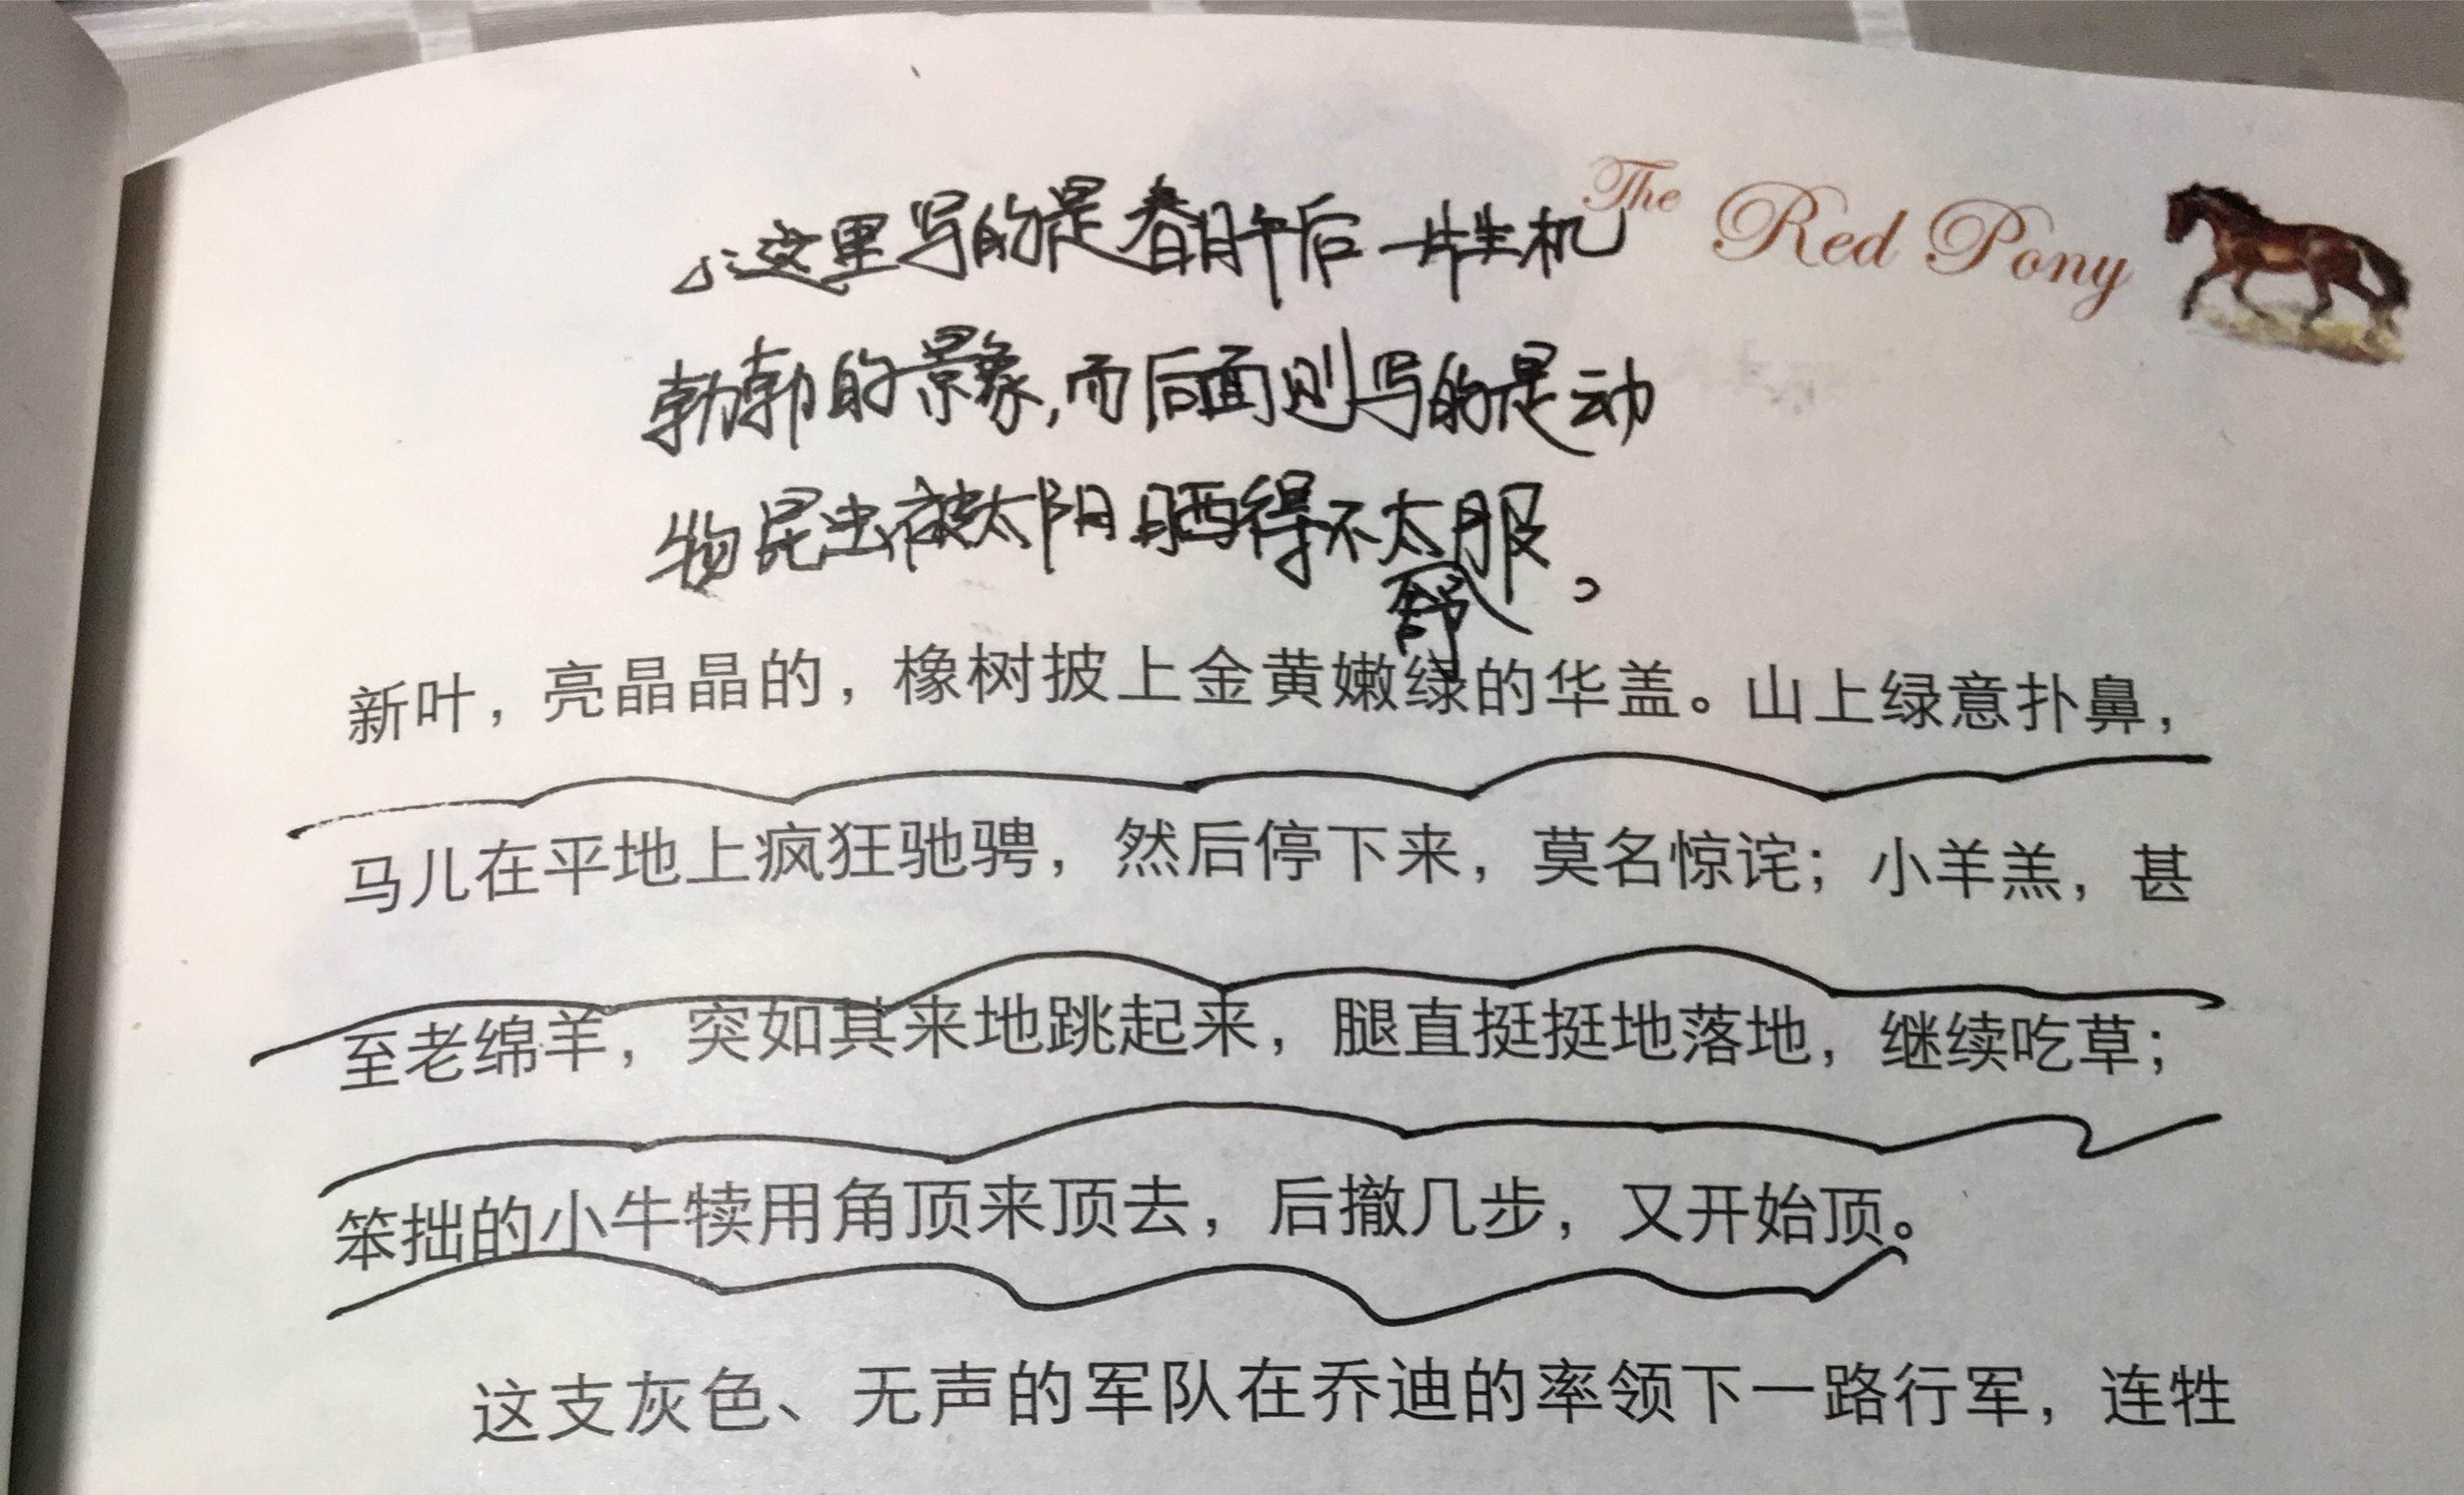 这里写的是春月午后一片生机
The Red Pony
勃勃的景象,而后面则写的是动
物昆虫被太阳晒得不太舒服,
新叶，亮晶晶的，橡树披上金黄嫩绿的华盖。山上绿意扑鼻，
马儿在平地上疯狂驰骋，然后停下来，莫名惊诧；小羊羔，甚
至老绵羊，突如其来地跳起来，腿直挺挺地落地，继续吃草；
笨拙的小牛犊用角顶来顶去，后撤几步，又开始顶。
这支灰色、无声的军队在乔迪的率领下一路行军，连牲